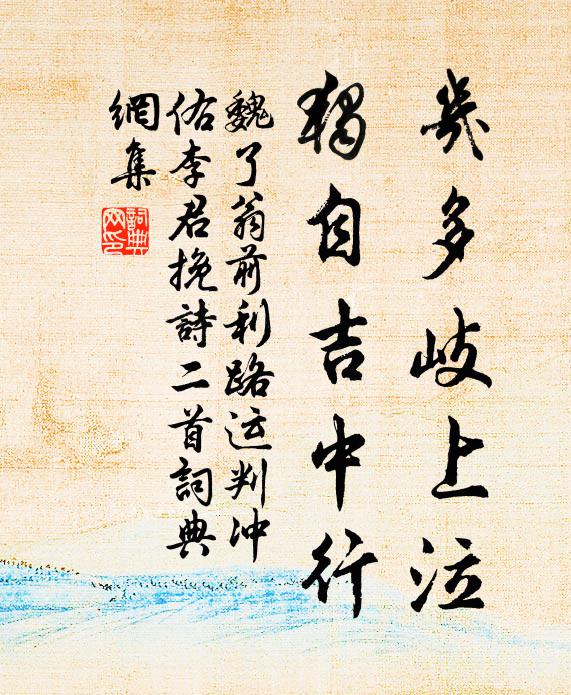 幾多歧上泣
獨自吉中行
魏了翁前利路运判冲
佑李君挽詩二首詞典
網集
詞典
网印